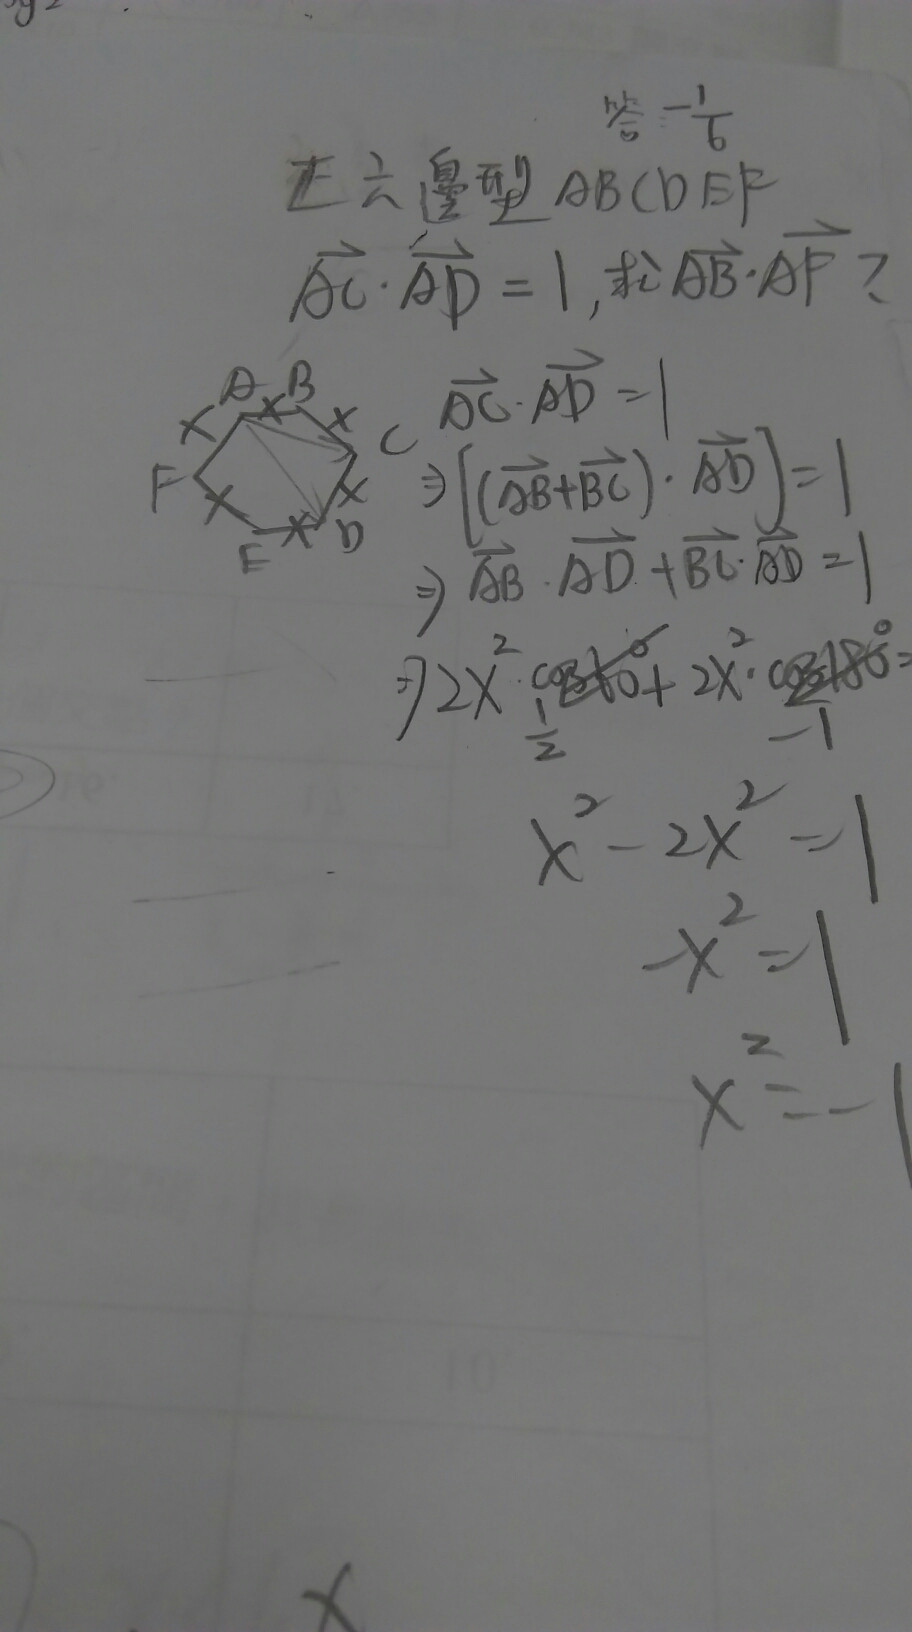 答 -1/6
正六邊型 ABCDEF
AC⃗·AD⃗=1, 求 AB⃗·AF⃗?
A B
C
F
E D
x x x x x x
AC⃗·AD⃗=1
⇒[(AB⃗+BC⃗)·AD⃗]=1
⇒AB⃗·AD⃗+BC⃗·AD⃗=1
⇒2x²·cos60°+2x²·cos180°=
1/2 -1
x²-2x²=1
-x²=1
x²=-1
x